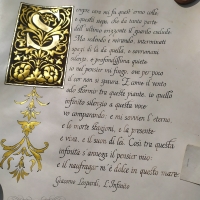 S
empre caro mi fu quest'ermo colle
e questa siepe, che da tanta parte
dell'ultimo orizzonte il guardo esclude.
Ma sedendo e mirando, interminati
spazi di là da quella, e sovrumani
silenzi, e profondissima quiete
io nel pensier mi fingo, ove per poco
il cor non si spaura. E come il vento
odo stormir tra queste piante, io quello
infinito silenzio a questa voce
vo comparando: e mi sovvien l'eterno,
e le morte stagioni, e la presente
e viva, e il suon di lei. Così tra questa
infinità s'annega il pensier mio:
e il naufragar m'è dolce in questo mare.
Giacomo Leopardi, L'Infinito